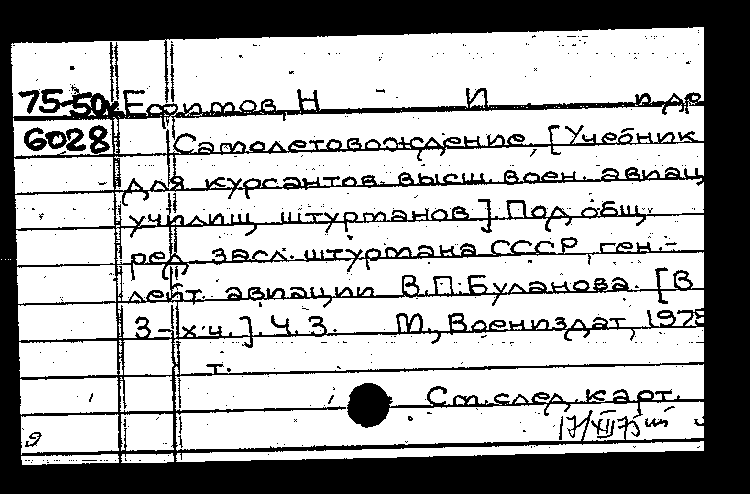 75-50к Ефимов, Н И и др
6028 Самолетовождение, [Учебник
для курсантов высш. воен. авиац
училищ штурманов]. Под общ.
ред. засл. штурмана СССР, ген.-
лейт. авиации В.П. Буланова. [В
3-х ч.]. Ч. 3. М., Воениздат, 1975
т.
Ст. след. карт.
17/XII75